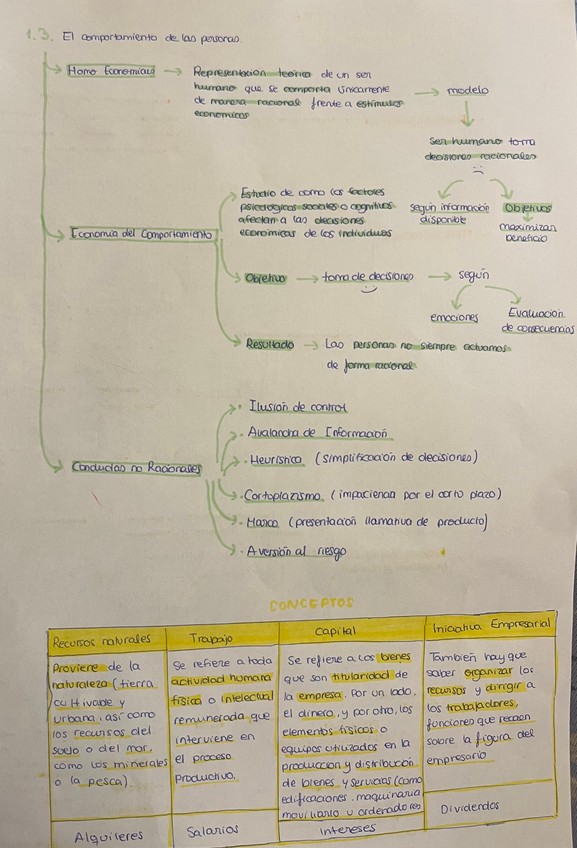 1.3. El comportamiento de las personas
Homo Economicus → Representación teórica de un ser
humano que se comporta únicamente → modelo
de manera racional frente a estímulos
económicos
Ser humano toma
decisiones racionales
según información
disponible
Objetivos
maximizan
beneficio
Economía del Comportamiento
Estudio de como los factores
psicológicos sociales o cognitivos
afectan a las decisiones
económicas de los individuos
Objetivo → toma de decisiones → según
emociones
Evaluación
de consecuencias
Resultado → Las personas no siempre actuamos
de forma racional
Conductas no Racionales
· Ilusión de control
· Avalancha de Información
· Heurística (simplificación de decisiones)
· Cortoplazismo (impaciencia por el corto plazo)
· Marco (presentación llamativa de producto)
· Aversión al riesgo
CONCEPTOS
Recursos naturales
Proviene de la
naturaleza (tierra
cultivable y
urbana, así como
los recursos del
suelo o del mar,
como los minerales
o la pesca)
Alquileres
Trabajo
Se refiere a toda
actividad humana
física o intelectual
remunerada que
interviene en
el proceso
productivo.
Salarios
Capital
Se refiere a los bienes
que son titularidad de
la empresa. Por un lado,
el dinero, y por otro, los
elementos físicos o
equipos utilizados en la
producción y distribución
de bienes y servicios (como
edificaciones, maquinaria
mobiliario u ordenadores
Intereses
Iniciativa Empresarial
También hay que
saber organizar los
recursos y dirigir a
los trabajadores,
funciones que recaen
sobre la figura del
empresario
Dividendos